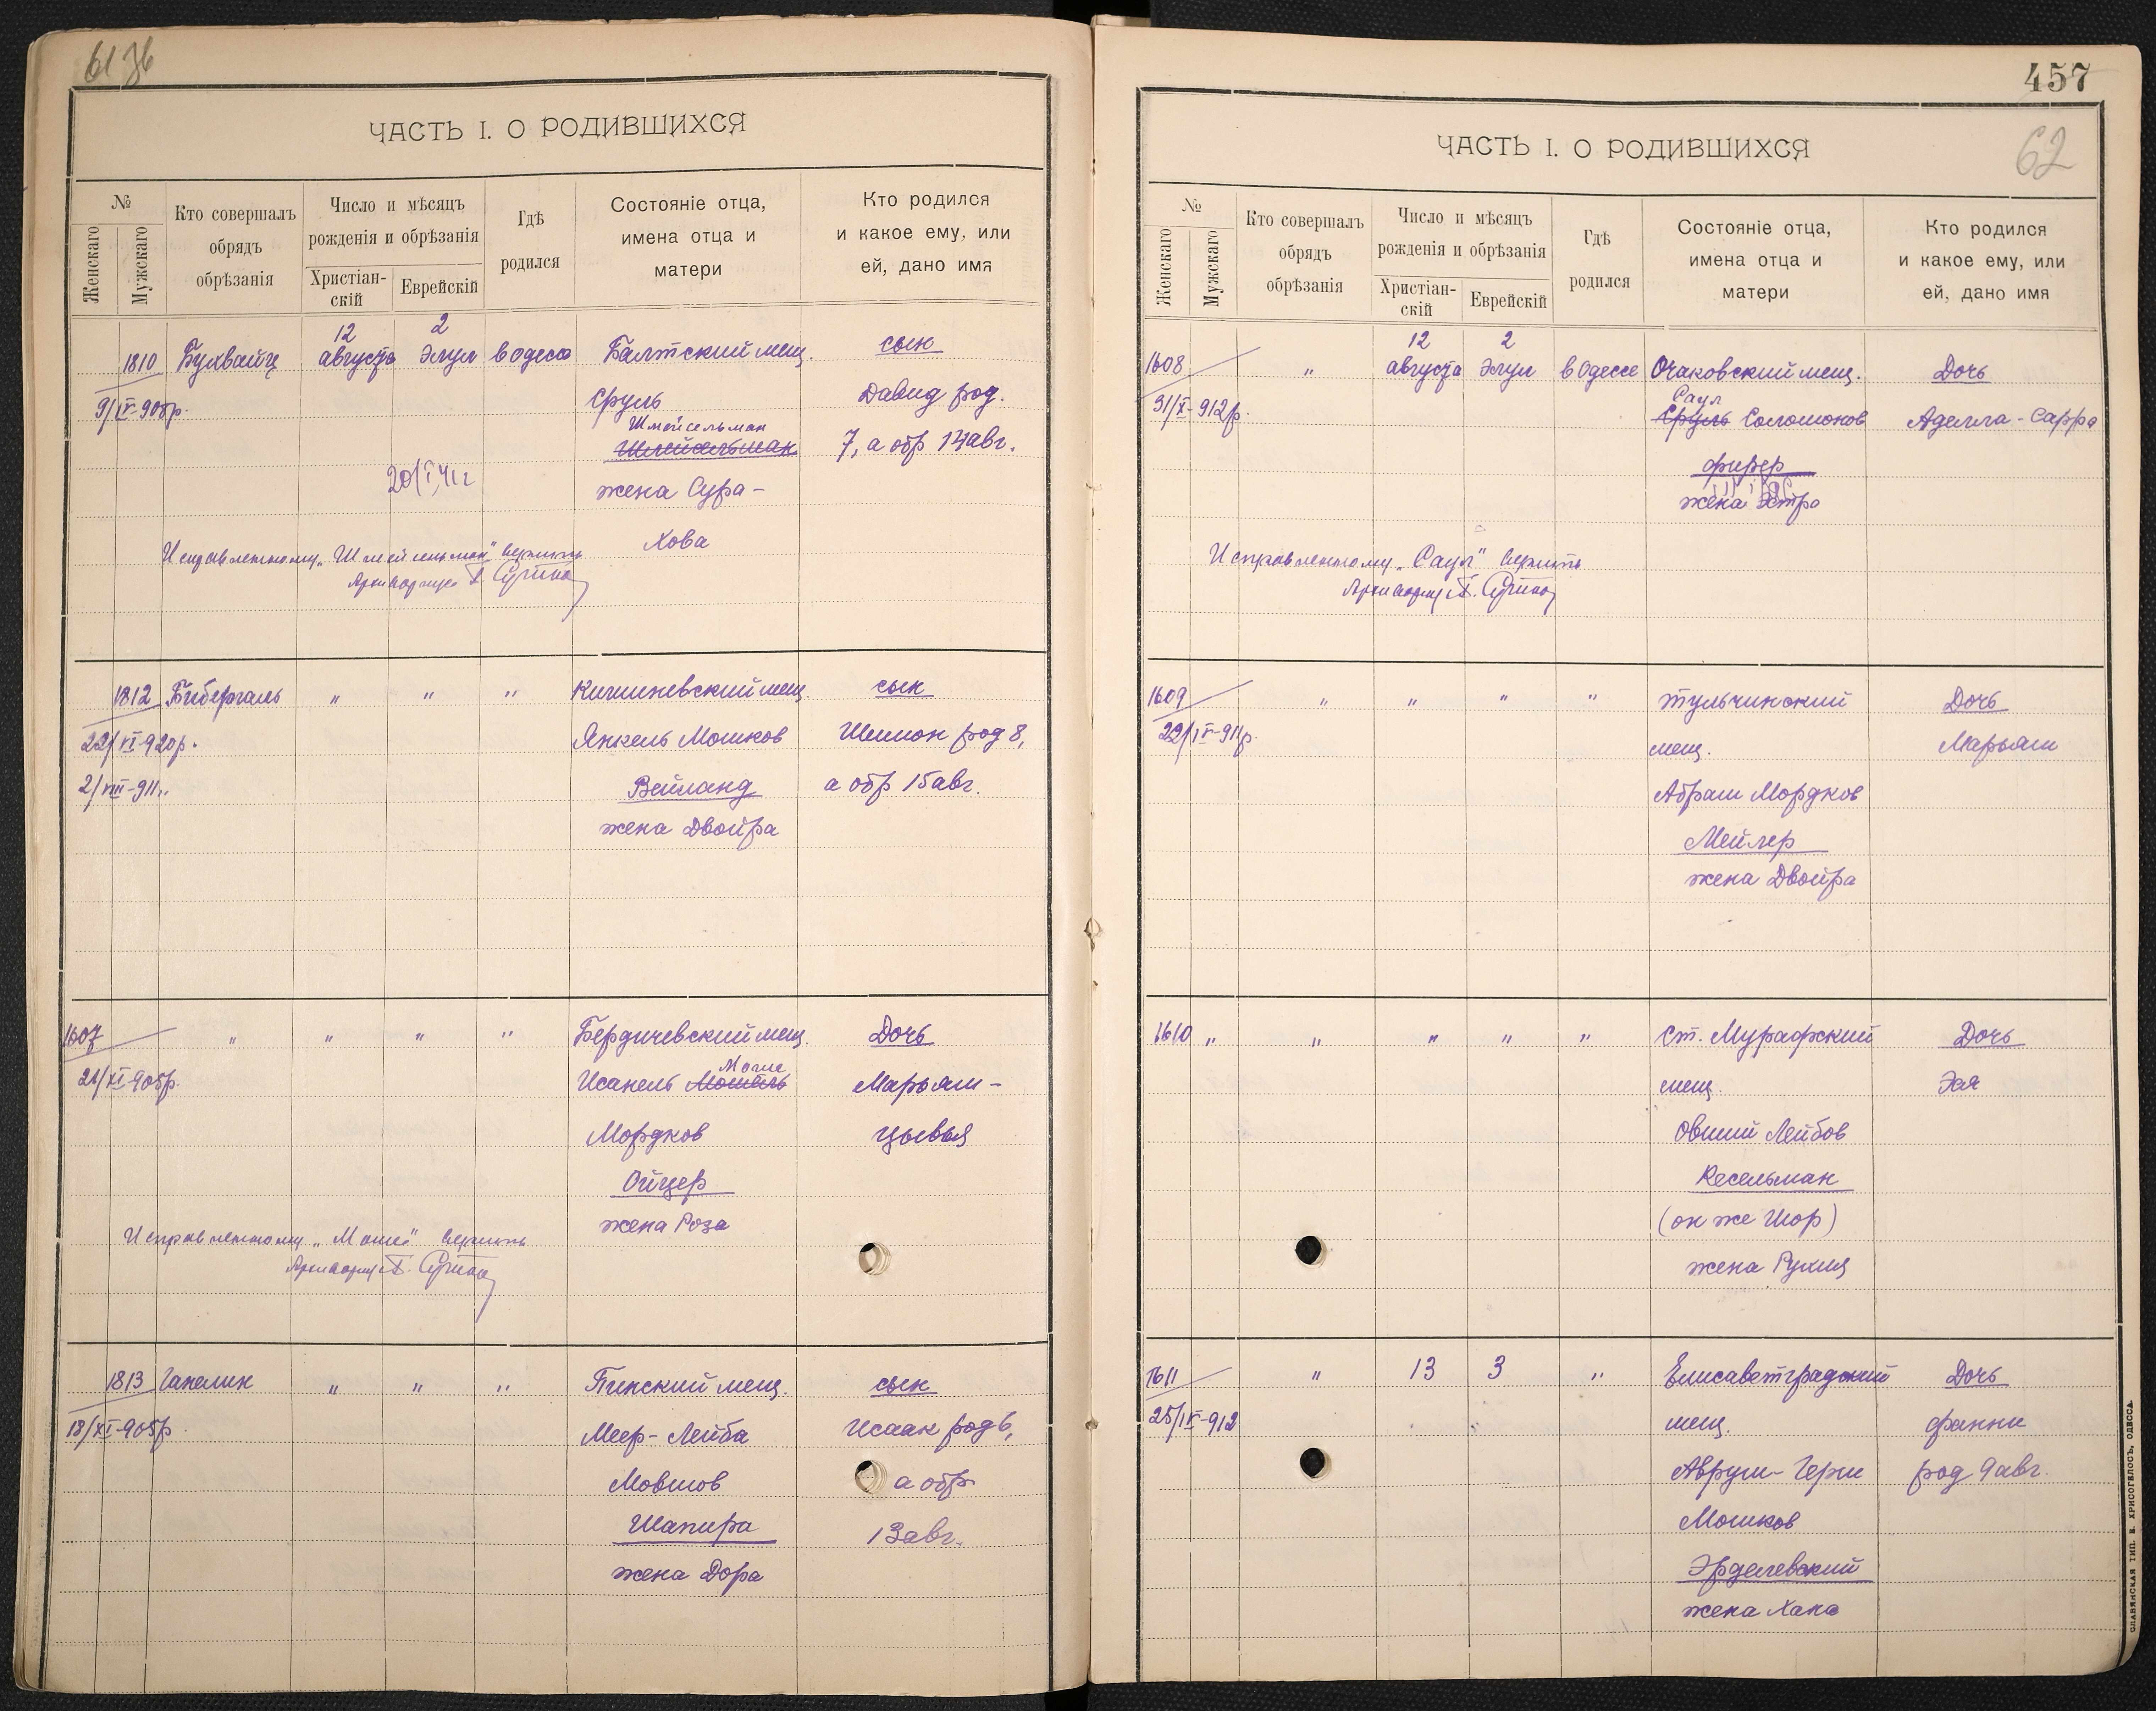 61 36
ЧАСТЬ I. О РОДИВШИХСЯ
№
Женскаго
Мужскаго
Кто совершалъ
обрядъ
обрѣзанія
Число и мѣсяцъ
рожденія и обрѣзанія
Христіан-
скій
Еврейскій
Гдѣ
родился
Состояніе отца,
имена отца и
матери
Кто родился
и какое ему, или
ей, дано имя
12 2
1810 Бухвайц августа Элул в Одессе Балтский мещ. сын
9/IV-908р. Сруль Давид род.
Шмойсельман
Шлейсельман 7, а обр 14 авг.
20/I 41 г жена Сура-
Хова
Исправленному "Шмейсельман" верить
Архивариус
1812 Бибергаль " " " Кишиневский мещ. сын
22/VI-920р. Янкель Мошков Шимон род 8,
2/VIII-911г. Вейланд а обр 15 авг.
жена Двойра
1607 " " " " Бердичевский мещ. Дочь
Моше
21/XI-905р. Исанель Мошель Марьям-
Мордков Цывья
Ойцер
жена Роза
Исправленному "Моше" верить
Архивариус
1813 Ганелин " " " Пинский мещ. сын
18/XI-905р Меер-Лейба Исаак род 6,
Мовшов а обр
Шапира 13 авг.
жена Дора
457
62
ЧАСТЬ I. О РОДИВШИХСЯ
№
Женскаго
Мужскаго
Кто совершалъ
обрядъ
обрѣзанія
Число и мѣсяцъ
рожденія и обрѣзанія
Христіан-
скій
Еврейскій
Гдѣ
родился
Состояніе отца,
имена отца и
матери
Кто родился
и какое ему, или
ей, дано имя
12 2
1608 " августа Элул в Одессе Очаковский мещ. Дочь
Саул
31/X-912р. Сруль Соломонов Аделла-Сарра
Фирер
жена Эстра
Исправленному "Саул" верить
Архивариус
1609 " " " " Тульчинский Дочь
22/IV-911р. мещ. Марьям
Абрам Мордков
Мейлер
жена Двойра
1610 " " " " " Ст. Мурафский Дочь
мещ. Эля
Овший Лейбов
Кесельман
(он же Шор)
жена Рухля
1611 " 13 3 " Елисаветградский Дочь
25/IV-912 мещ. Фанни
Аврум-Герш род 9 авг.
Мошков
Эрделевский
жена Хана
СЛАВЯНСКАЯ ТИП. Н. ХРИСОГЕЛОСЪ, ОДЕССА.